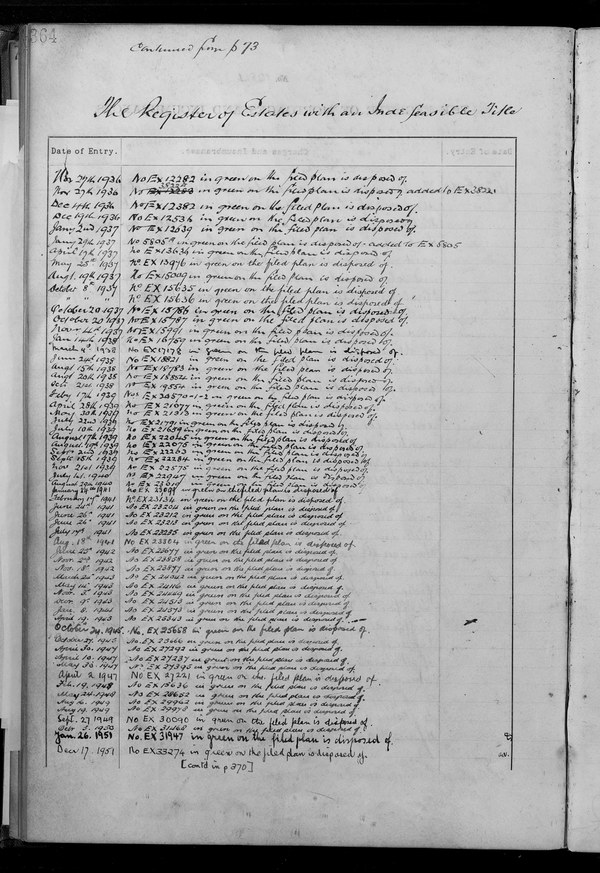 364
Continued from p 73
The Register of Estates with an Indefeasible Title
Date of Entry.
Nov 27th 1936 No EX 12282 in green on the filed plan is disposed of.
Nov 27th 1936 No in green on the filed plan is disposed of added to EX
Dec 4th 1936 No EX 12382 in green on the filed plan is disposed of.
Dec 19th 1936 No EX 12534 in green on the filed plan is disposed of
Jany 2nd 1937 No EX 12639 in green on the filed plan is disposed of.
Jany 29th 1937 No 5805 in green on the filed plan is disposed of - added to EX 5805
April 17th 1937 No EX 13634 in green on the filed plan is disposed of
May 25th 1937 No EX 13976 in green on the filed plan is disposed of.
Augt. 19th 1937 No EX 15009 in green on the filed plan is disposed of
October 8th 1937 No EX 15635 in green on the filed plan is disposed of
" " " No EX 15636 in green on the filed plan is disposed of
October 20 1937 No EX 15786 in green on the filed plan is disposed of
October 20 1937 No EX 15787 in green on the filed plan is disposed of.
1937 No EX 15991 in green on the filed plan is disposed of.
Jan 14th 1938 No EX 16759 in green on the filed plan is disposed of.
March 1938 No EX 17176 in green on the filed plan is disposed of.
June 1938 No EX 18821 in green on the filed plan is disposed of
Augt 15th 1938 No EX 18783 in green on the filed plan is disposed of.
Augt 20th 1938 No EX in green on the filed plan is disposed of
Oct 21st 1938 No EX 19554 in green on the filed plan is disposed of.
Feby 17th 1939 Nos EX 20570-1-2 in green on the filed plan is disposed of.
April 28th 1939 No EX 21077 in green on the filed plan is disposed of.
May 30th 1939 No EX 21313 in green on the filed plan is disposed of.
1939 No EX 21791 in green on the filed plan is disposed of.
July 10th 1939 No EX 21659 in green on the filed plan is disposed of.
August 17th 1939 No EX 22045 in green on the filed plan is disposed of
August 1939 No EX 22075 in green on the filed plan is disposed of
Sept 2nd 1939 No EX 22263 in green on the filed plan is disposed of
Sept 1939 No EX 22284 in green on the filed plan is disposed of.
Nov 21st 1939 No EX 22575 in green on the filed plan is disposed of
July 1st 1940 No EX 22947 in green on the filed plan is disposed of
August 1940 No EX in green on the filed plan is disposed of.
January 1941 No EX 23099 in green on the filed plan is disposed of
February 14th 1941 No EX 23134 in green on the filed plan is disposed of.
June 24th 1941 No EX 23204 in green on the filed plan is disposed of.
June 26th 1941 No EX 23212 in green on the filed plan is disposed of
June 26th 1941 No EX 23213 in green on the filed plan is disposed of
July 1941 No EX 23235 in green on the filed plan is disposed of.
1941 No EX 23304 in green on the filed plan is disposed of.
June 23rd 1942 No EX 23677 in green on the filed plan is disposed of.
Novr. 2nd 1942 No EX 23858 in green on the filed plan is disposed of.
Nov. 18th 1942 No EX 23897 in green on the filed plan is disposed of.
March 1943 No EX 24042 in green on the filed plan is disposed of.
May 14th 1943 No EX 24116 in green on the filed plan is disposed of.
Nov. 5th 1943 No EX 24449 in green on the filed plan is disposed of
Dec. 9th 1943 No EX 24513 in green on the filed plan is disposed of
Jan. 6. 1944 No EX 24575 in green on the filed plan is disposed of
April 19. 1945 No EX 25343 in green on the filed plan is disposed of.
October 24. 1945. No. EX 25658 in green on the filed plan is disposed of.
October 27. 1945 No EX 25666 in green on the filed plan is disposed of
April 30. 1947 No EX 27292 in green on the filed plan is disposed of.
April 10. 1947 No EX 27237 in green on the filed plan is disposed of.
May 30. 1947 No EX 27395 in green on the filed plan is disposed of.
April 2 1947 No EX 27221 in green on the filed plan is disposed of.
Feb. 19. 1948 No EX 15636 in green on the filed plan is disposed of.
May 24. 1948 No EX 28652 in green on the filed plan is disposed of.
Aug 16. 1949 No EX 29962 in green on the filed plan is disposed of
Aug 19. 1949 No EX 29978 in green on the filed plan is disposed of.
Sept. 27 1949 No EX 30090 in green on the filed plan is disposed of.
Oct 3. 1950 No EX 31468 in green on the filed plan is disposed of.
Jan. 26. 1951 No. EX 31947 in green on the filed plan is disposed of.
Dec 17. 1951 No EX 33274 in green on the filed plan is disposed of.
[contd in p 370]